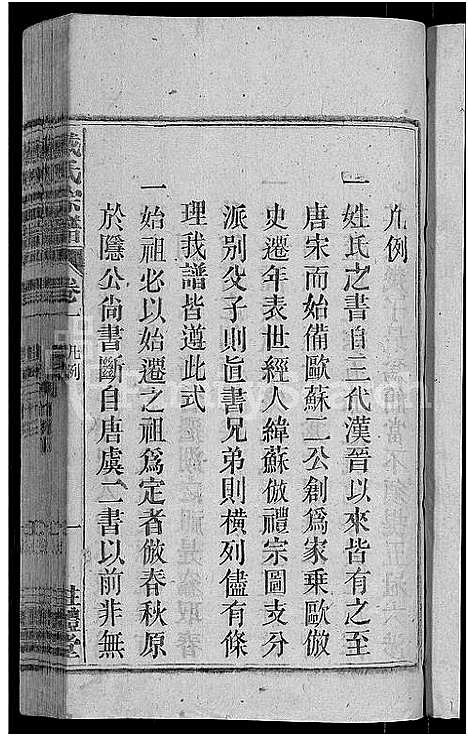 凡例
一姓氏之書自三代漢晉以來皆有之至
唐宋而始備歐蘇二公創爲家乘歐倣
史遷年表世經人緯蘇倣禮宗圖支分
派別父子則直書兄弟則橫列儘有條
理我譜皆遵此式
一始祖必以始遷之祖爲定者倣春秋原
於隱公尚書斷自唐虞二書以前非無
氏宗譜
卷一
凡例
一
堂